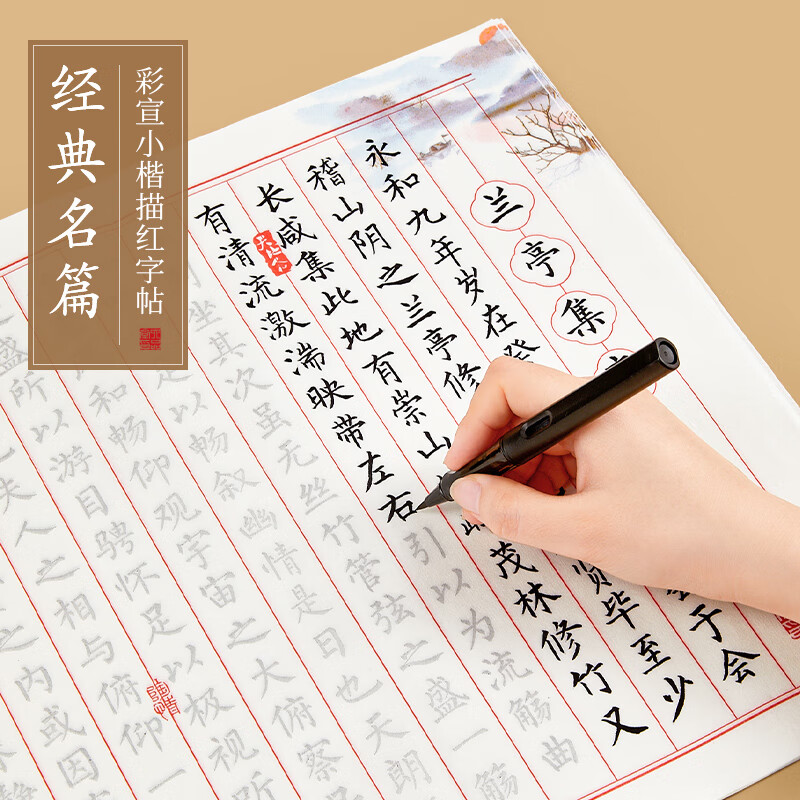 经典名篇
彩宣小楷描红字帖
兰亭集
永和九年岁在癸
于会
稽山阴之兰亭修
贤毕至少
长咸集此地有崇山
茂林修竹又
有清流激湍映带左右引以为流觞曲
坐其次虽无丝竹管弦之盛一觞
以畅叙幽情是日也天朗
和畅仰观宇宙之大俯察
盛所以游目骋怀足以极视
夫人之相与俯仰一
之内或因